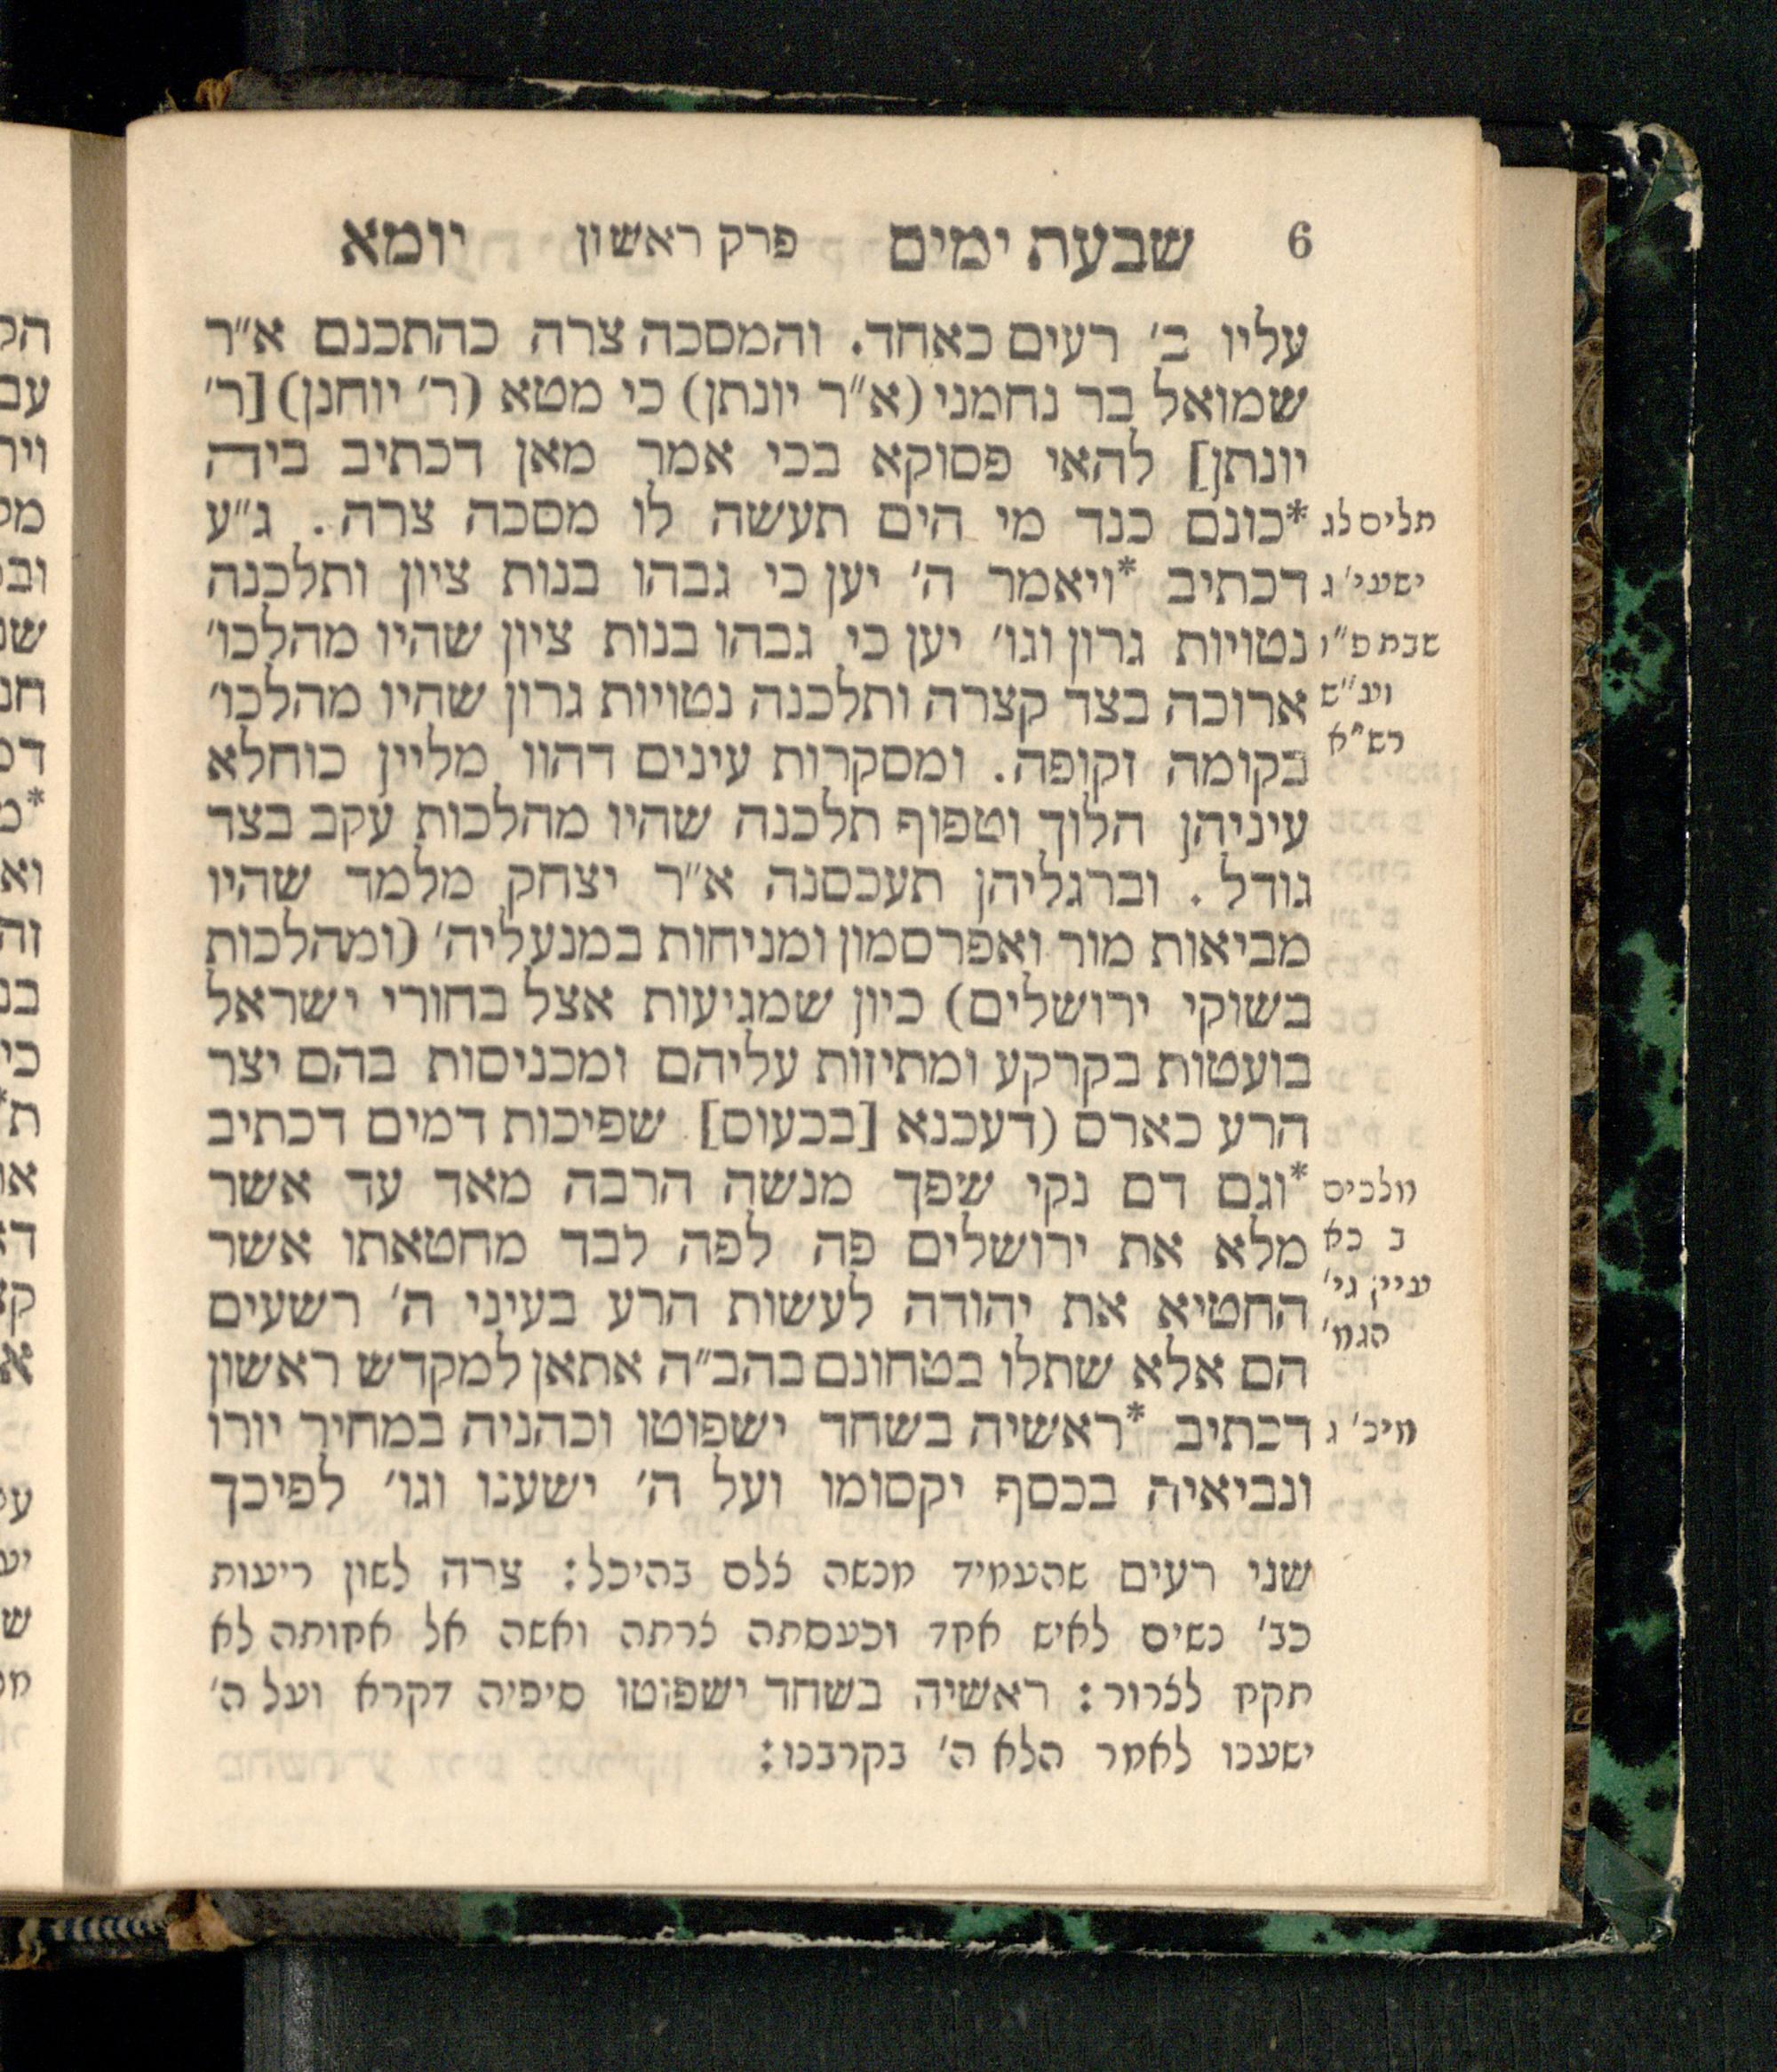 6 שבעת ימים פרק ראשון יומא
עליו ב׳ רעים כאחד. והמסכה צרה כהתכנס א״ר
שמואל בר נחמני (א״ר יונתן) כי מטא (ר׳ יוחנן) [ר׳
יונתן] להאי פסוקא בכי אמר מאן דכתיב ביה
תליס לג *כונס כנד מי הים תעשה לו מסכה צרה. ג״ע
ישעי׳ ג דכתיב *ויאמר ה׳ יען כי גבהו בנות ציון ותלכנה
שבת ס״ו נטויות גרון וגו׳ יען כי גבהו בנות ציון שהיו מהלכו׳
וע״ש ארוכה בצד קצרה ותלכנה נטויות גרון שהיו מהלכו׳
רש״א
בקומה זקופה. ומסקרות עינים דהוו מליין כוחלא
עיניהן הלוך וטפוף תלכנה שהיו מהלכות עקב בצד
גודל. וברגליהן תעכסנה א״ר יצחק מלמד שהיו
מביאות מור ואפרסמון ומניחות במנעליה׳ (ומהלכות
בשוקי ירושלים) כיון שמגיעות אצל בחורי ישראל
בועטות בקרקע ומתיזות עליהם ומכניסות בהם יצר
הרע כארס (דעכנא [בכעוס] שפיכות דמים דכתיב
מלכים *וגם דם נקי שפך מנשה הרבה מאד עד אשר
ב כא מלא את ירושלים פה לפה לבד מחטאתו אשר
עיין גי׳
החטיא את יהודה לעשות הרע בעיני ה׳ רשעים
הגמ׳
הם אלא שתלו בטחונם בהב״ה אתאן למקדש ראשון
מיכ׳ ג דכתיב *ראשיה בשחד ישפוטו וכהניה במחיר יורו
ונביאיה בכסף יקסומו ועל ה׳ ישענו וגו׳ לפיכך
שני רעים שהעמיד מנשה צלם בהיכל: צרה לשון ריעות
כב׳ נשים לאיש אחד וכעסתה צרתה ואשה אל אחותה לא
תקח לצרור: ראשיה בשחד ישפוטו סיפיה דקרא ועל ה׳
ישענו לאמר הלא ה׳ בקרבנו: